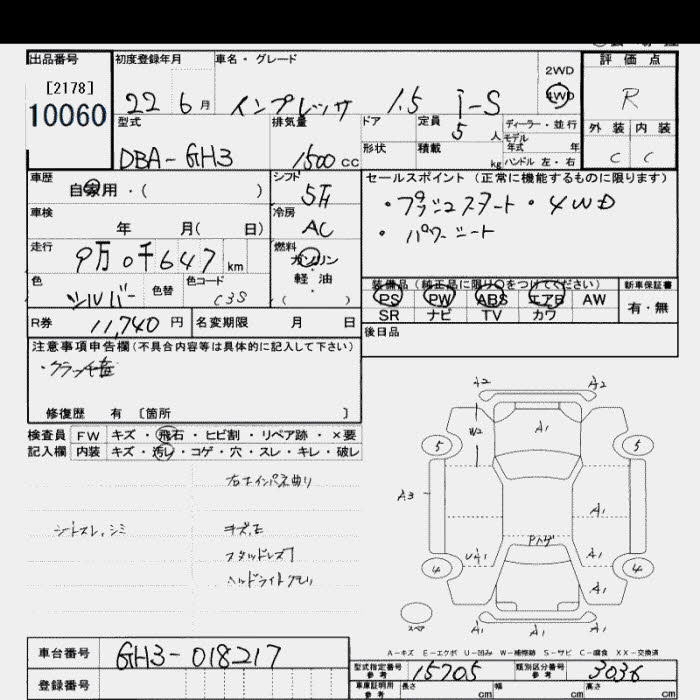 出品番号
[2178]
10060
初度登録年月
22 6月
車名・グレード
インプレッサ 1.5 i-S
2WD
4WD
評価点
R
外装 内装
C C
型式
DBA-GH3
排気量
1500cc
ドア
定員
5人
ディーラー・並行
モデル
年式 年
形状
積載
kg
ハンドル 左・右
車歴
自家用・( )
シフト
5F
車検
年 月( 日)
冷房
AC
走行
9万0千647km
燃料
ガソリン
軽油
( )
色
シルバー
色替
色コード
C3S
R券 11,740円
名変期限 月 日
セールスポイント(正常に機能するものに限ります)
・プッシュスタート ・4WD
・パワーシート
装備品(純正品に限り○をつけてください)
新車保証書
PS PW ABS エアB AW
有・無
SR ナビ TV カワ
後日品
注意事項申告欄(不具合内容等は具体的に記入して下さい)
修復歴 有 〔箇所 〕
検査員 FW キズ・飛石・ヒビ割・リペア跡・×要
記入欄 内装 キズ・汚レ・コゲ・穴・スレ・キレ・破レ
シートスレ、シミ
A2 A2
W2
A1
5 5
A3
A1
Pトゲ
UA1
A1
4 4
A1
スペア
A1 A1
A-キズ E-エクボ U-凹み W-補修跡 S-サビ C-腐食 XX-交換済
車台番号 GH3-018217
登録番号
型式指定番号
参考
15705
類別区分番号
参考
3036
車庫証明用
参考
長さ cm
幅 cm
高さ cm